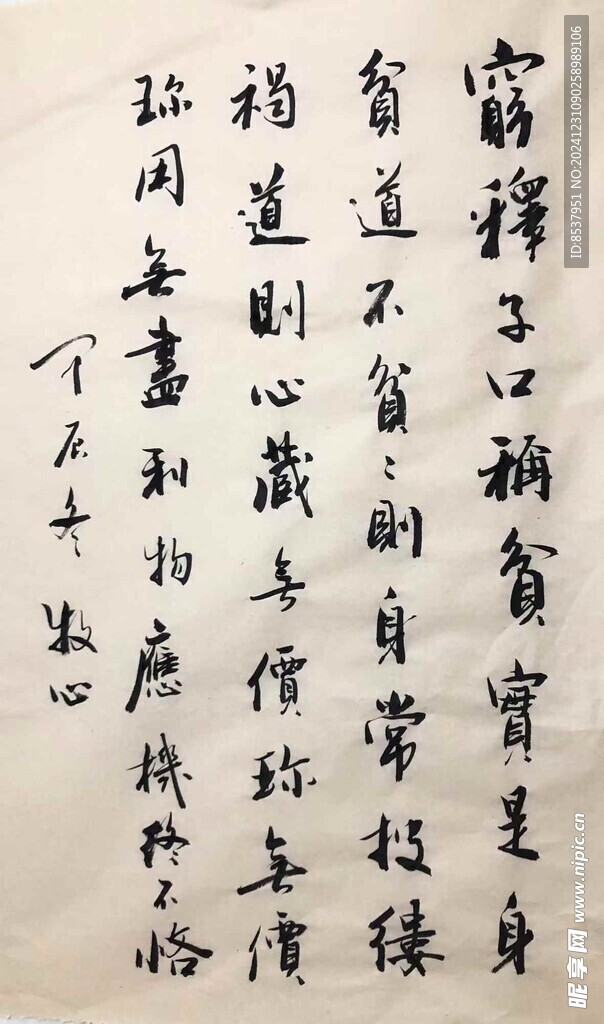 窮釋子口稱貧實是身
貧道不貧〻則身常披縷
褐道則心藏無價珍無價
珍用無盡利物應機終不悋
甲辰冬牧心
ID:8537951 NO:20241231090258989106
昵享网 www.nipic.cn